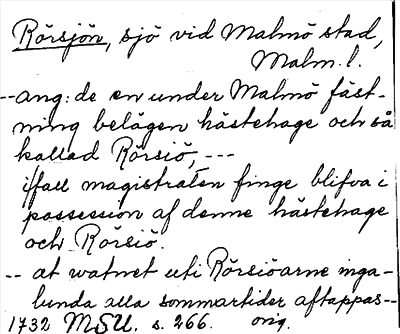 Rörsjön, sjö vid Malmö stad,
Malm. l.
-- ang: de en under Malmö fäst-
ning belägen hästehage och så
kallad Rörsiö, ---
ifall magistraten finge blifva i
possession af denne hästehage
och Rörsiö.
-- at watnet uti Rörsiöarne inga-
lunda alla sommartider aftappas --
1732 MSU. s. 266. orig.